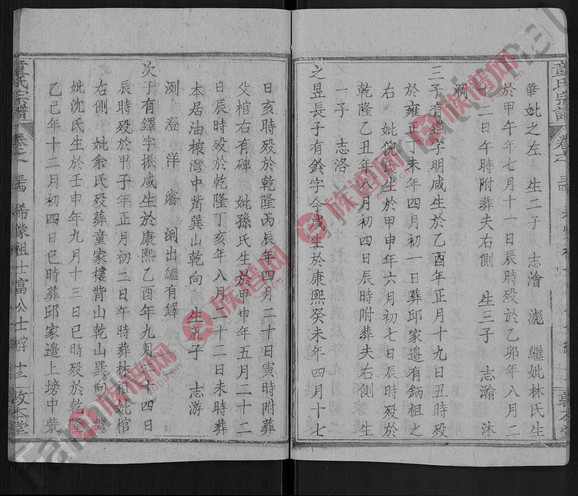 畢妣之左 生二子 志澮 滮 繼妣林氏生
於甲午年七月十一日辰時殁於乙卯年八月二
十二日午時附葬夫右側 生三子 志瀚 沐
澗
三子有 字明咸生於乙酉年正月十九日丑時
於雍正丁未年四月初一日葬邱家邊有鈵祖之
右 妣倪氏生於甲申年六月初七日辰時殁於
乾隆乙丑年八月初四日附葬夫右側 生
一子 志洛
之昱長子有鈴字今殁於康熙癸未年四月十七
日亥時殁於乾隆丙辰年四月二十日寅時附葬
父棺右有碑 妣孫氏生於甲申年五月二十二
日辰時殁於乾隆丁亥年八月二十二日未時葬
本居油榨灣中 巽山乾向 生五子 志游
渕 澄 洋 濬 渕出繼有鐸
次子有鐸字振咸生於康熙乙酉年九月二十四日
辰時殁於甲子年正月初二日午時葬林祖妣棺
右側 妣余氏殁葬童家樓背山乾山巽向 繼
妣沈氏生於壬申年九月十三日巳時殁於乾隆
乙巳年十二月初四日巳時葬邱家邊上塝中葬
童氏宗譜 卷之 希濠祖士富公士 十三 敦本堂
族譜网